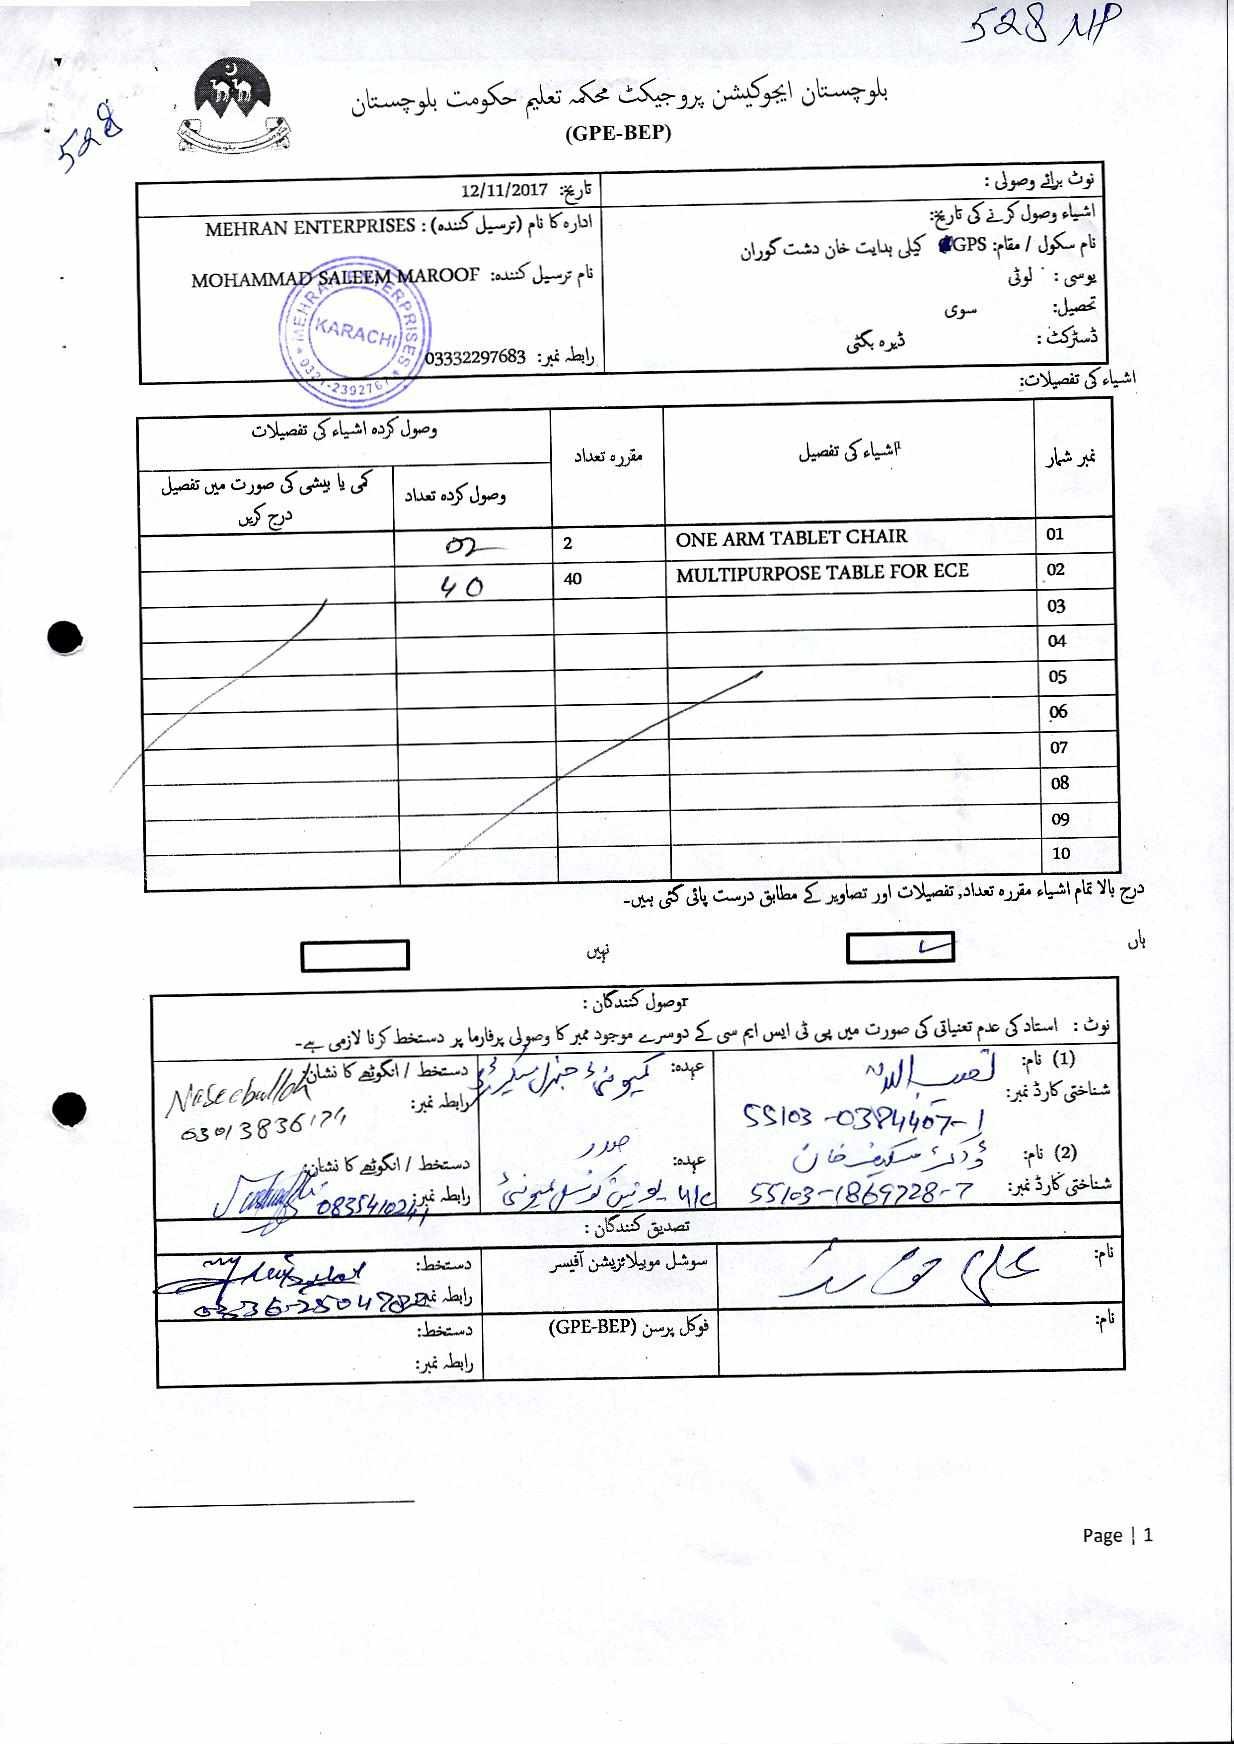 528 NP
528
بلوچستان ایجوکیشن پروجیکٹ محکمہ تعلیم حکومت بلوچستان
(GPE-BEP)
نوٹ برائے وصولی :
اشیاء وصول کرنے کی تاریخ:
نام سکول / مقام: GPS کیلی ہدایت خان دشت گوران
یوسی : لوٹی
تحصیل: سوی
ڈسٹرکٹ : ڈیرہ بگٹی
تاریخ: 12/11/2017
ادارہ کا نام (ترسیل کنندہ) : MEHRAN ENTERPRISES
نام ترسیل کنندہ: MOHAMMAD SALEEM MAROOF
رابطہ نمبر: 03332297683
MEHRAN ENTERPRISES
KARACHI
0321-2392767
اشیاء کی تفصیلات:
نمبر شمار اشیاء کی تفصیل مقررہ تعداد وصول کردہ اشیاء کی تفصیلات
وصول کردہ تعداد کمی یا بیشی کی صورت میں تفصیل درج کریں
01 ONE ARM TABLET CHAIR 2 02
02 MULTIPURPOSE TABLE FOR ECE 40 40
03
04
05
06
07
08
09
10
درج بالا تمام اشیاء مقررہ تعداد, تفصیلات اور تصاویر کے مطابق درست پائی گئی ہیں۔
ہاں نہیں
وصول کنندگان :
نوٹ : استاد کی عدم تعنیاتی کی صورت میں پی ٹی ایس ایم سی کے دوسرے موجود ممبر کا وصولی پرفارما پر دستخط کرنا لازمی ہے۔
(1) نام: نصیب اللہ
شناختی کارڈ نمبر: 55103-0384407-1
عہدہ: کمیونٹی جنرل سیکریٹری
دستخط / انگوٹھے کا نشان: Naseebullah
رابطہ نمبر: 03013836174
(2) نام: خان
شناختی کارڈ نمبر: 55103-1869728-7
عہدہ: صدر
یونین کونسل
دستخط / انگوٹھے کا نشان:
رابطہ نمبر: 0835410241
تصدیق کنندگان :
نام:
سوشل موبیلائزیشن آفیسر
دستخط:
رابطہ نمبر:
نام:
فوکل پرسن (GPE-BEP)
دستخط:
رابطہ نمبر:
Page | 1